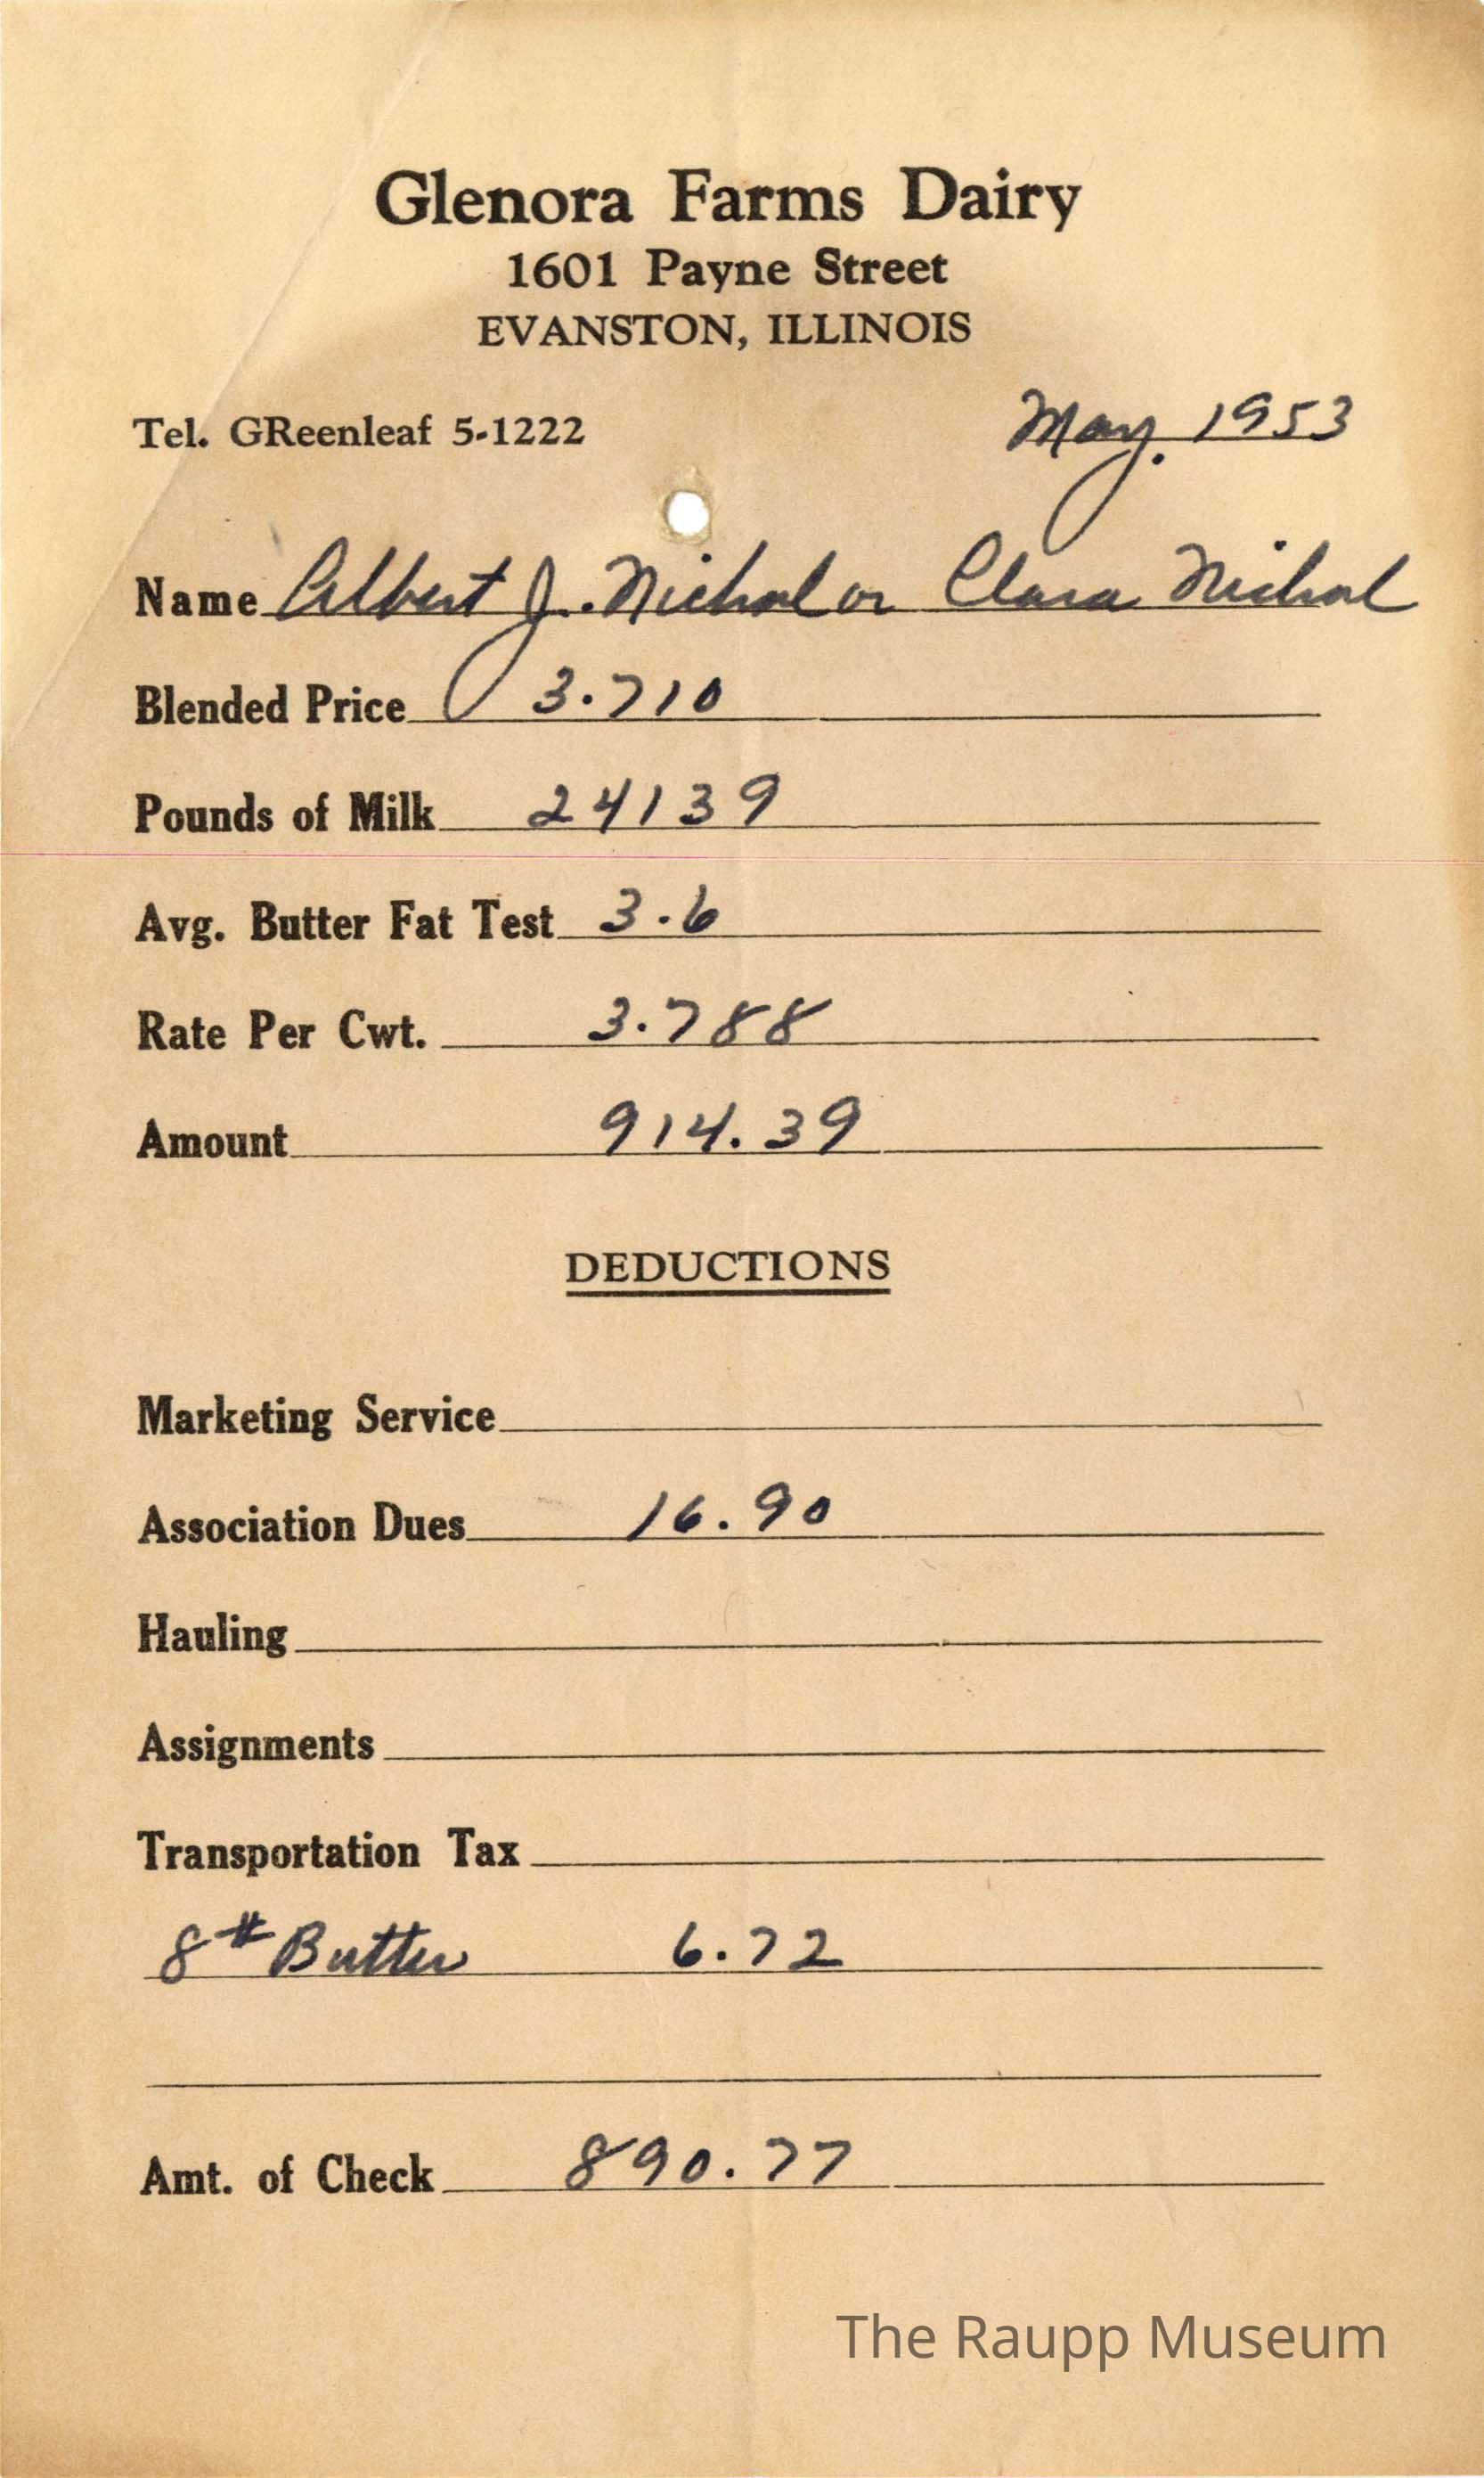 Glenora Farms Dairy
1601 Payne Street
EVANSTON, ILLINOIS
Tel. GReenleaf 5-1222 May. 1953
Name Albert J. Nichol or Clara Nichol
Blended Price 3.710
Pounds of Milk 24139
Avg. Butter Fat Test 3.6
Rate Per Cwt. 3.788
Amount 914.39
DEDUCTIONS
Marketing Service
Association Dues 16.90
Hauling
Assignments
Transportation Tax
8# Butter 6.72
Amt. of Check 890.77
The Raupp Museum